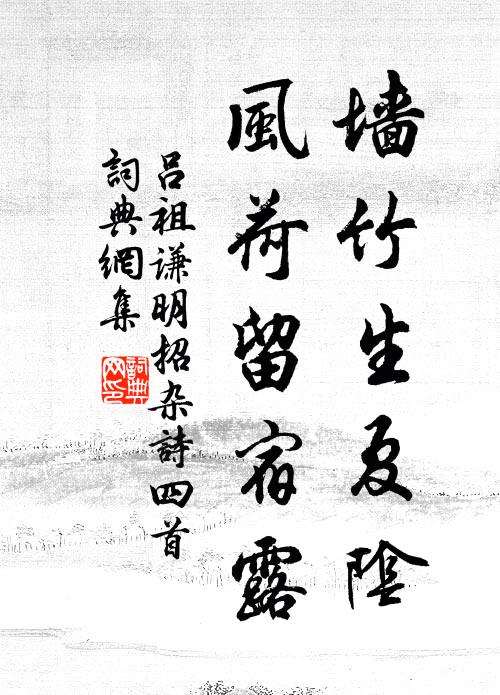 墙竹生夏陰
風荷留宿露
吕祖谦明招杂詩四首
詞典網集
詞典
网印